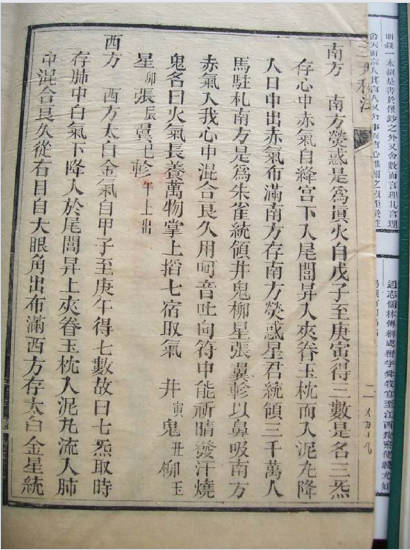 南方　南方熒惑是爲眞火自戊子至庚寅得三數是名三炁
存心中赤氣自絳宮下入尾閭昇入夾脊玉枕而入泥丸降
入目中出赤氣布滿南方存南方熒惑星君統領三千萬人
馬駐札南方是爲朱雀統領井鬼柳星張翼軫以鼻吸南方
赤氣入我心中混合良久用呵音吐向符中能祈晴發汗燒
鬼名曰火氣長養萬物掌上掐七宿取氣　井寅鬼丑柳玉
星卯張辰翼巳軫午上出
西方　西方太白金氣自甲子至庚午得七數故曰七炁取時
存肺中白氣下降人於尾閭昇上夾脊玉枕入泥丸流入肺
中混合良久從右目自大眼角出布滿西方存太白金星統